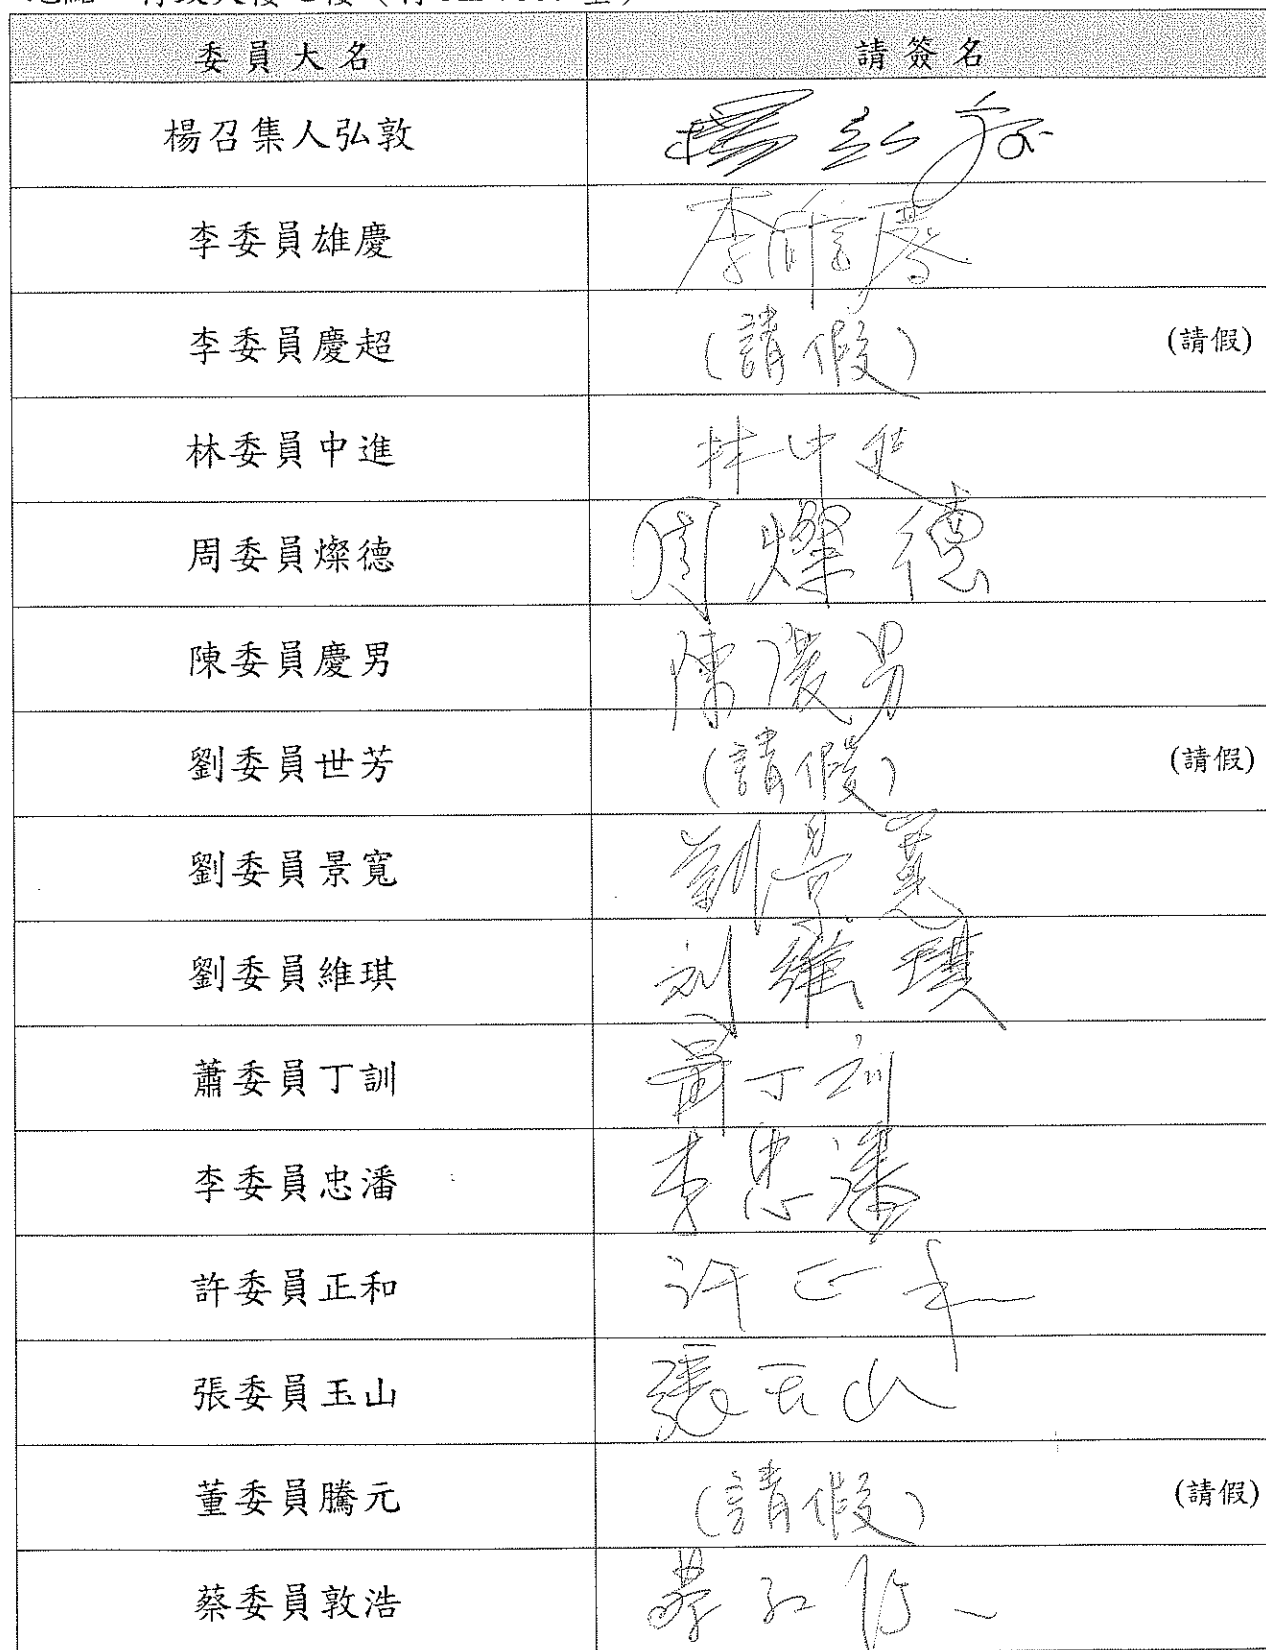 委員大名 請簽名
楊召集人弘敦 楊弘敦
李委員雄慶 李雄慶
李委員慶超 (請假) (請假)
林委員中進 林中進
周委員燦德 周燦德
陳委員慶男 陳慶男
劉委員世芳 (請假) (請假)
劉委員景寬 劉景寬
劉委員維琪 刘維琪
蕭委員丁訓 蕭丁訓
李委員忠潘 李忠潘
許委員正和 許正和
張委員玉山 張玉山
董委員騰元 (請假) (請假)
蔡委員敦浩 蔡